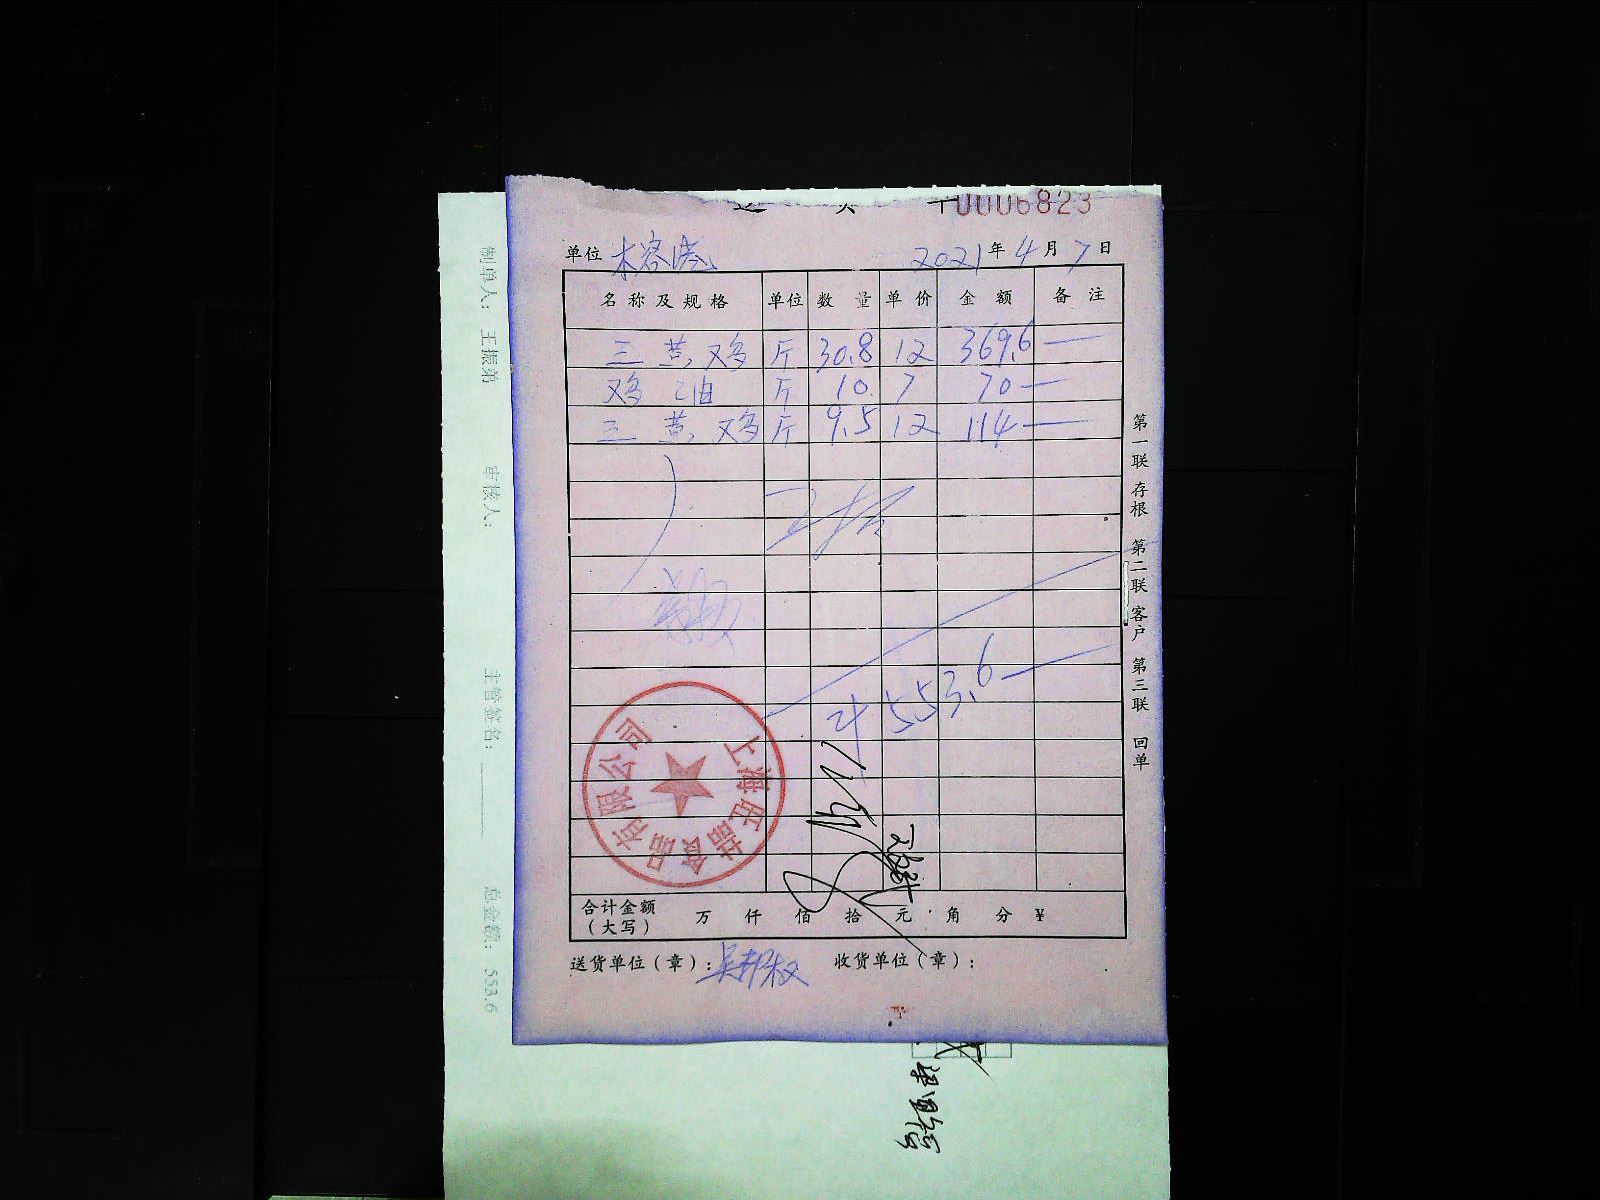 0006823
单位 木容 2021年4月7日
名称及规格 单位 数量 单价 金额 备注
三黄鸡 斤 30.8 12 369.6 —
鸡油 斤 10. 7 70 —
三黄鸡 斤 9.5 12 114 —
553.6 —
上海旺喆食品有限公司
合计金额（大写） 万 仟 佰 拾 元 角 分 ¥
送货单位（章）：吴邦权 收货单位（章）：
第一联 存根 第二联 客户 第三联 回单
制单人： 王振弟 审核人： 主管签名： 总金额： 553.6